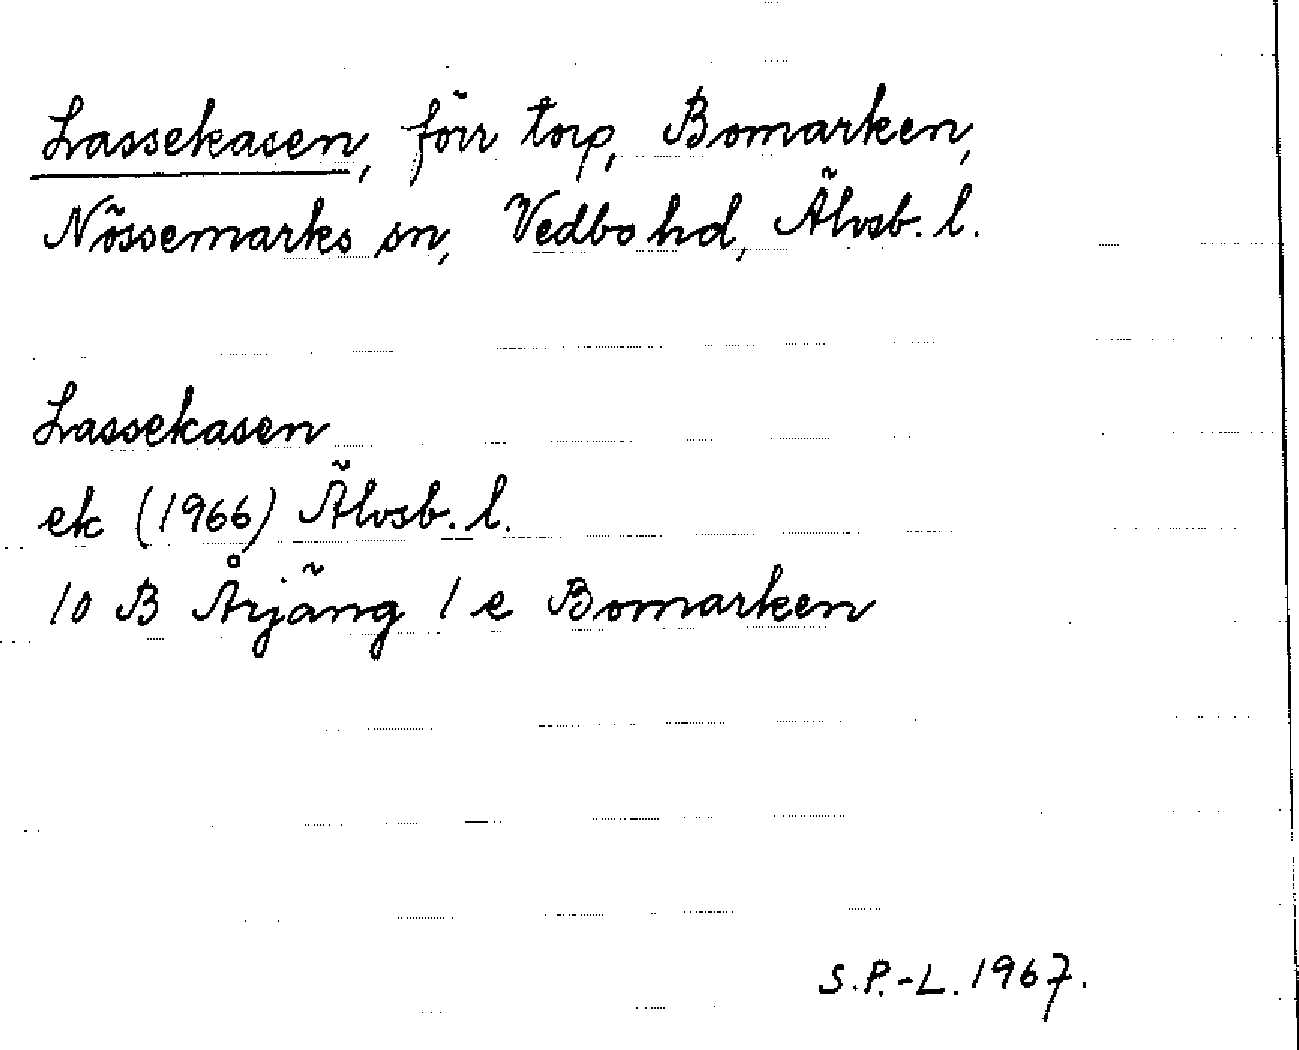 Lassekasen, förr torp, Bomarken,
Nössemarks sn, Vedbo hd, Älvsb. l.
Lassekasen
ek (1966) Älvsb. l.
10 B Årjäng 1 e Bomarken
S.P.-L. 1967.